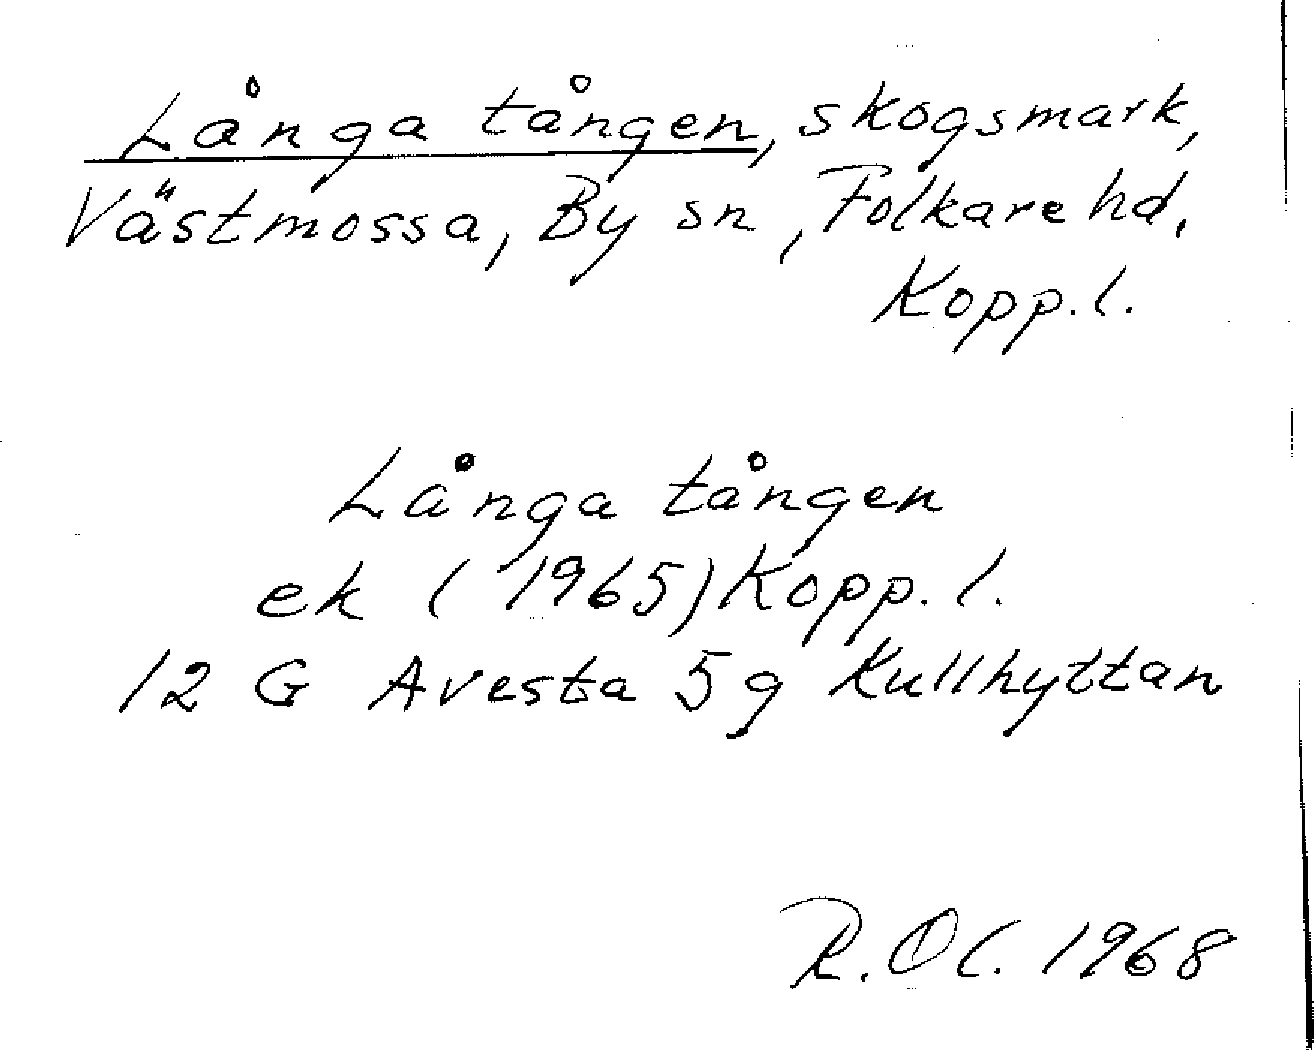 Långa tången, skogsmark,
Västmossa, By sn, Folkare hd.
Kopp. l.
Långa tången
ek (1965) Kopp. l.
12 G Avesta 5g Kullhyttan
R. Ol. 1968